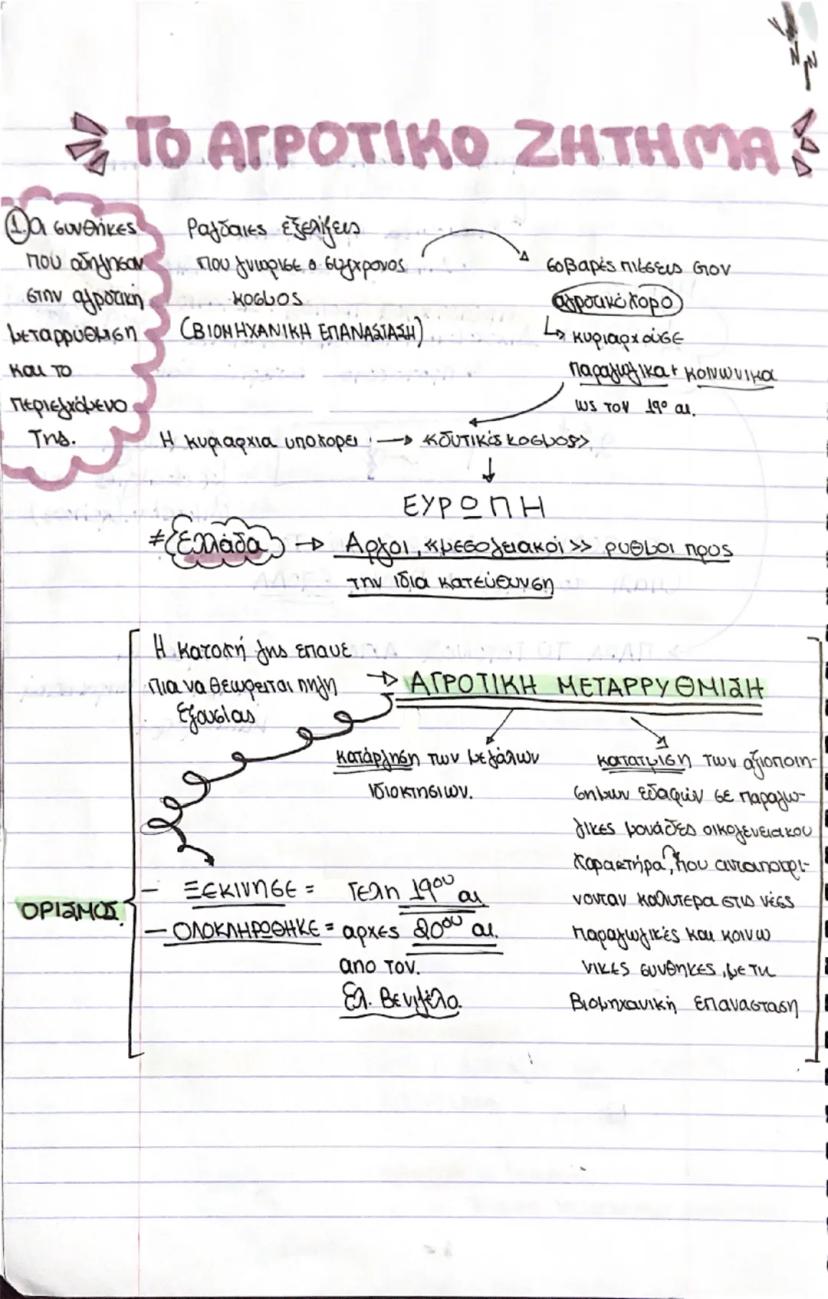 ΤΟ ΑΓΡΟΤΙΚΟ ΖΗΤΗΜΑ
1. Οι συνθήκες
που οδήγησαν
στην αγροτική
μεταρρύθμιση
και το
περιεχόμενο
της.
Ραγδαιες εξελίξεις
που γνωρισε ο σύγχρονος
κοσμος
(ΒΙΟΜΗΧΑΝΙΚΗ ΕΠΑΝΑΣΤΑΣΗ)
σοβαρές πιέσεις στον
αγροτικό χορο
κυριαρχούσε
παραγωγικα + κοινωνικα
ως τον 19ο αι.
Η κυριαρχια υποχορει → «δυτικός κοσμος»
ΕΥΡΩΠΗ
≠ Ελλάδα → Αργοι, «μεσογειακοί» ρυθμοι προς
την ιδια κατεύθυνση
Η κατοχή γης επαυε
πια να θεωρειται πηγή
εξουσίας
→ ΑΓΡΟΤΙΚΗ ΜΕΤΑΡΡΥΘΜΙΣΗ
κατάργηση των μεγάλων
ιδιοκτησιων.
κατατμιση των αξιοποιη-
σημων εδαφών σε παραγω-
γικες μονάδες οικογενειακου
χαρακτήρα, που ανταποκρι-
νονταν καλυτερα στις νέες
παραγωγικές και κοινω
νικές συνθηκες, με τη
Βιομηχανική επανασταση
ΟΡΙΣΜΟΣ
- ΞΕΚΙΝΗΣΕ = Τελη 19ου αι.
- ΟΛΟΚΛΗΡΩΘΗΚΕ = αρχες 20ου αι.
απο τον.
Ελ. Βενιζέλο.